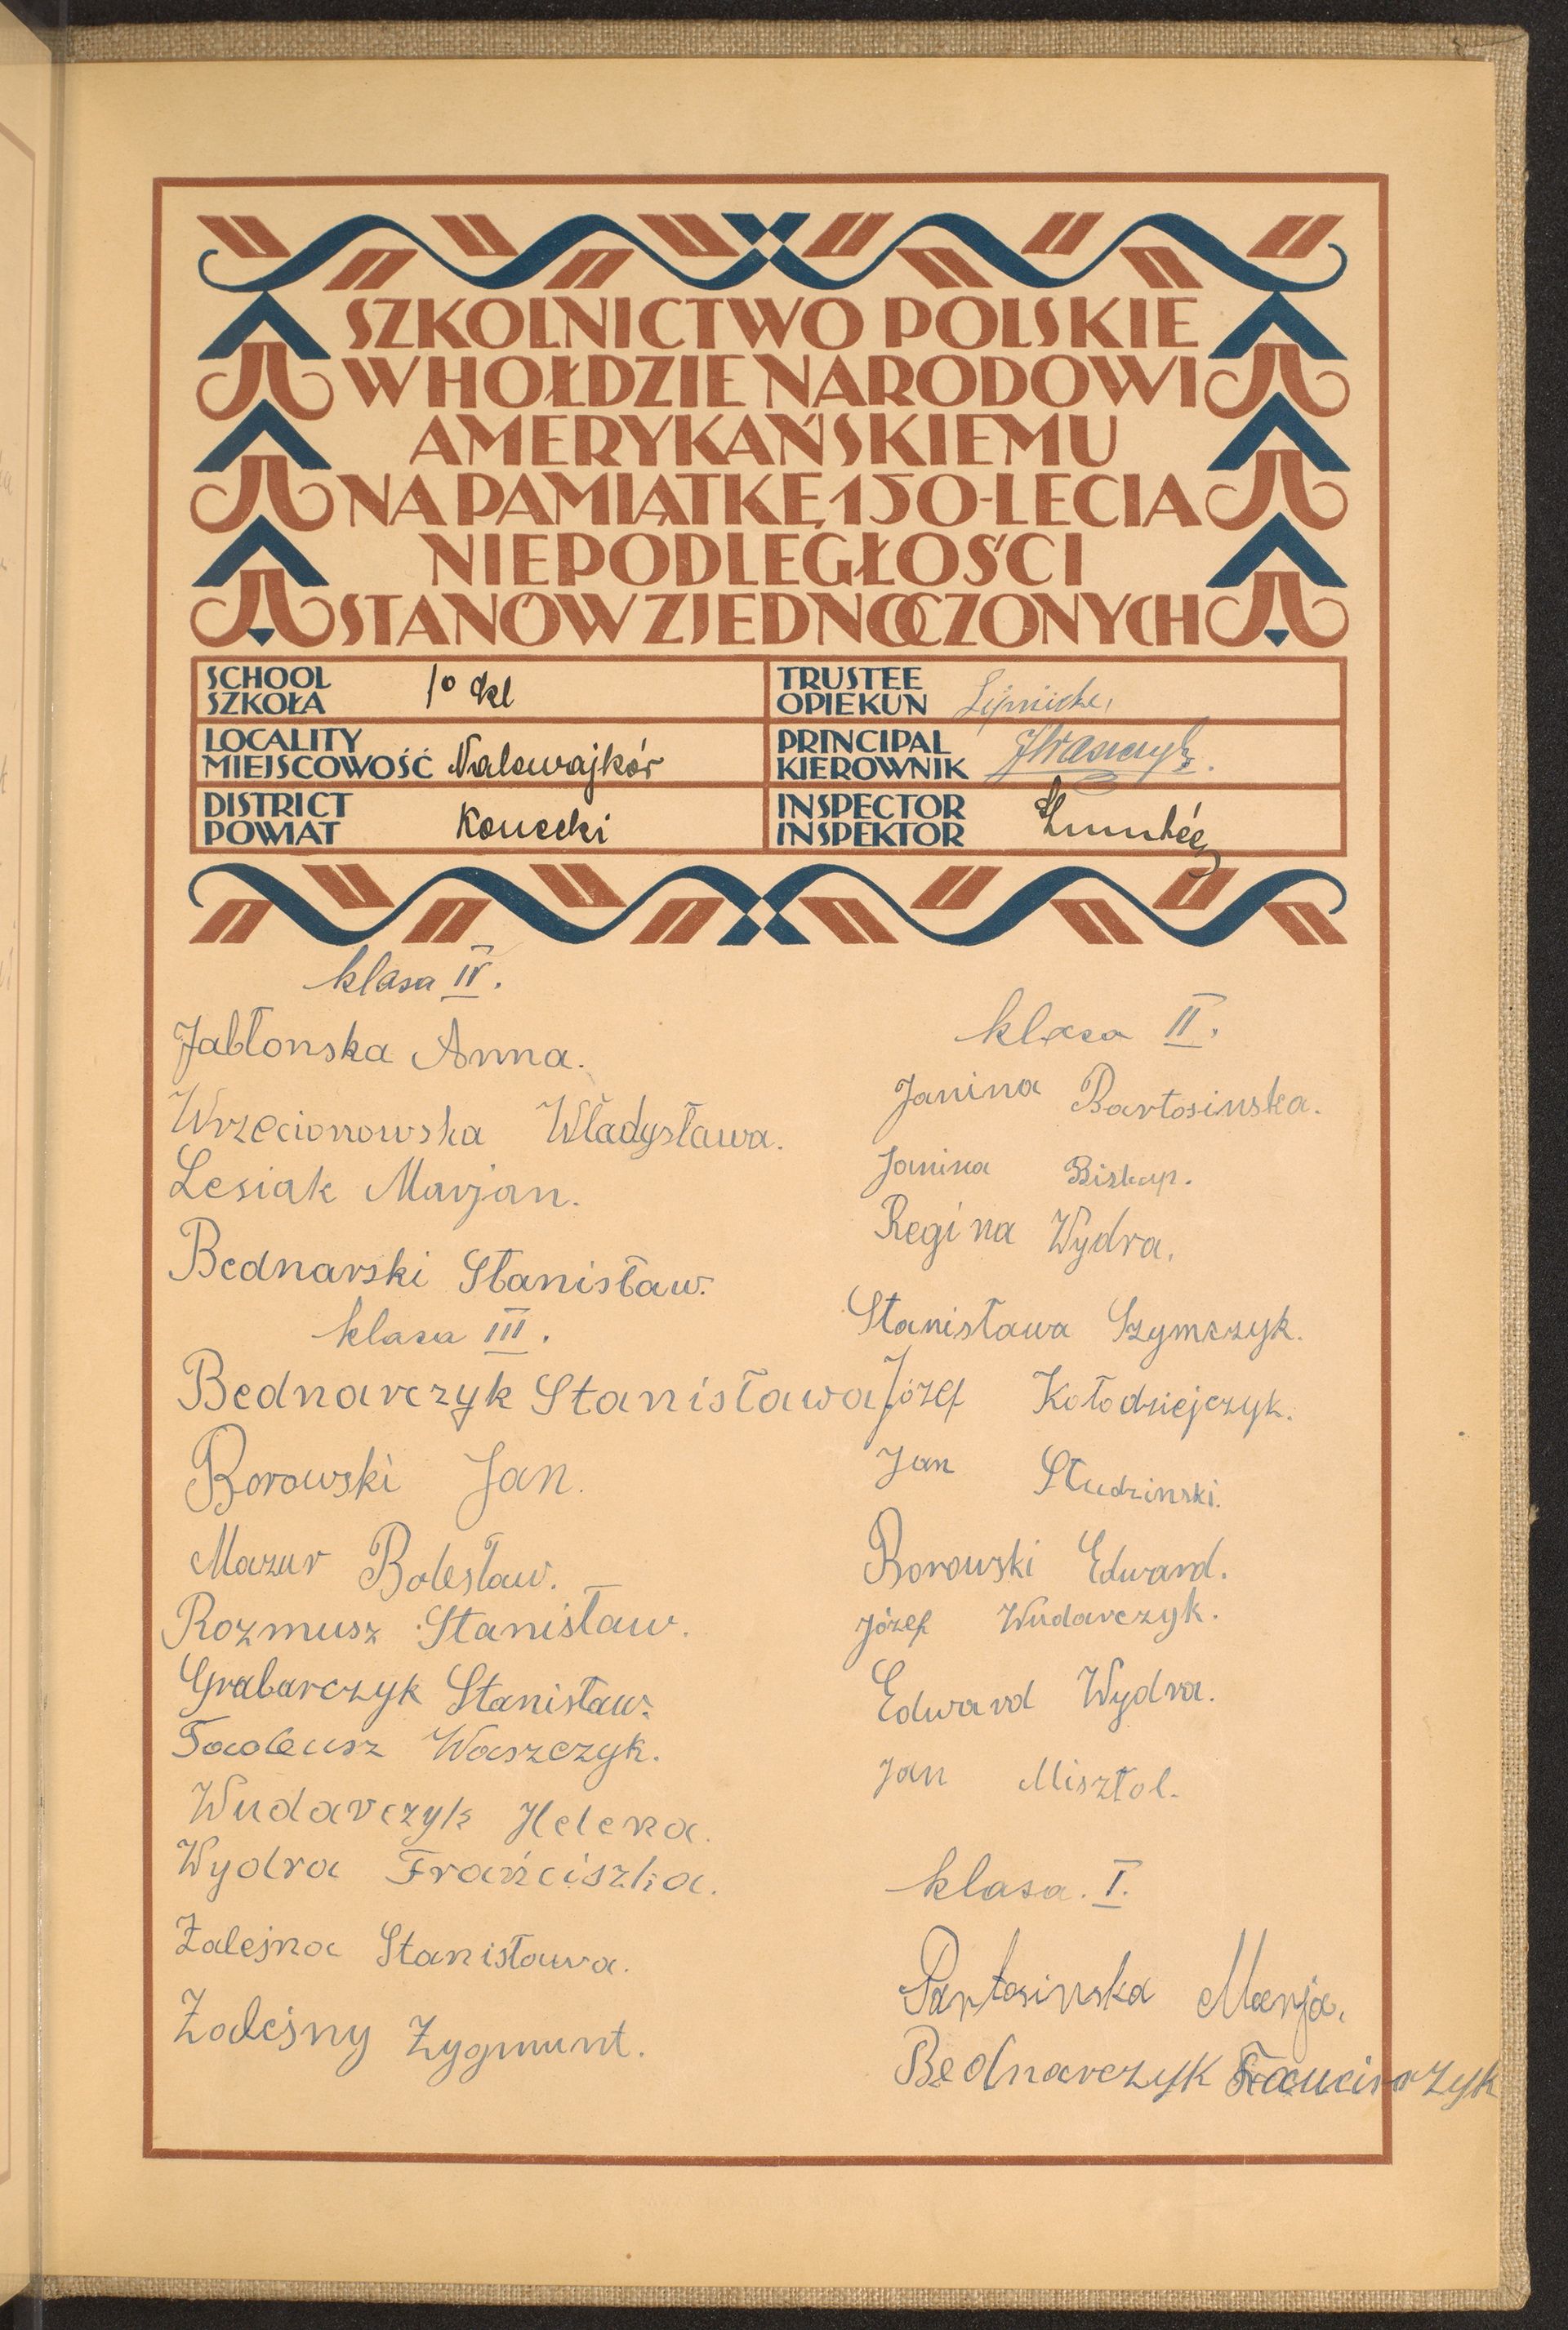 SZKOLNICTWO POLSKIE
W HOŁDZIE NARODOWI
AMERYKAŃSKIEMU
NA PAMIĄTKĘ 150-LECIA
NIEPODLEGŁOŚCI
STANÓW ZJEDNOCZONYCH
SCHOOL
SZKOŁA
1º kl
TRUSTEE
OPIEKUN
LOCALITY
MIEJSCOWOŚĆ Nalewajków
PRINCIPAL
KIEROWNIK
DISTRICT
POWIAT Konecki
INSPECTOR
INSPEKTOR
klasa IV.
Jabłonska Anna.
Wrzecionowska Władysława.
Lesiak Marjan.
Bednarski Stanisław.
klasa III.
Bednarczyk Stanisława
Borowski Jan.
Mazur Bolesław.
Rozmusz Stanisław.
Grabarczyk Stanisław.
Tadeusz Waszczyk.
Wudarczyk Helena.
Wydra Frańciszka.
Zaleśna Stanisława.
Zaleśny Zygmunt.
klasa II.
Janina Bartosinska.
Janina Biskup.
Regina Wydra.
Stanisława Szymczyk.
Józef Kołodziejczyk.
Jan Studzinski.
Borowski Edward.
Józef Wudarczyk.
Edward Wydra.
Jan Misztol.
klasa. I.
Bartosinska Marja.
Bednarczyk